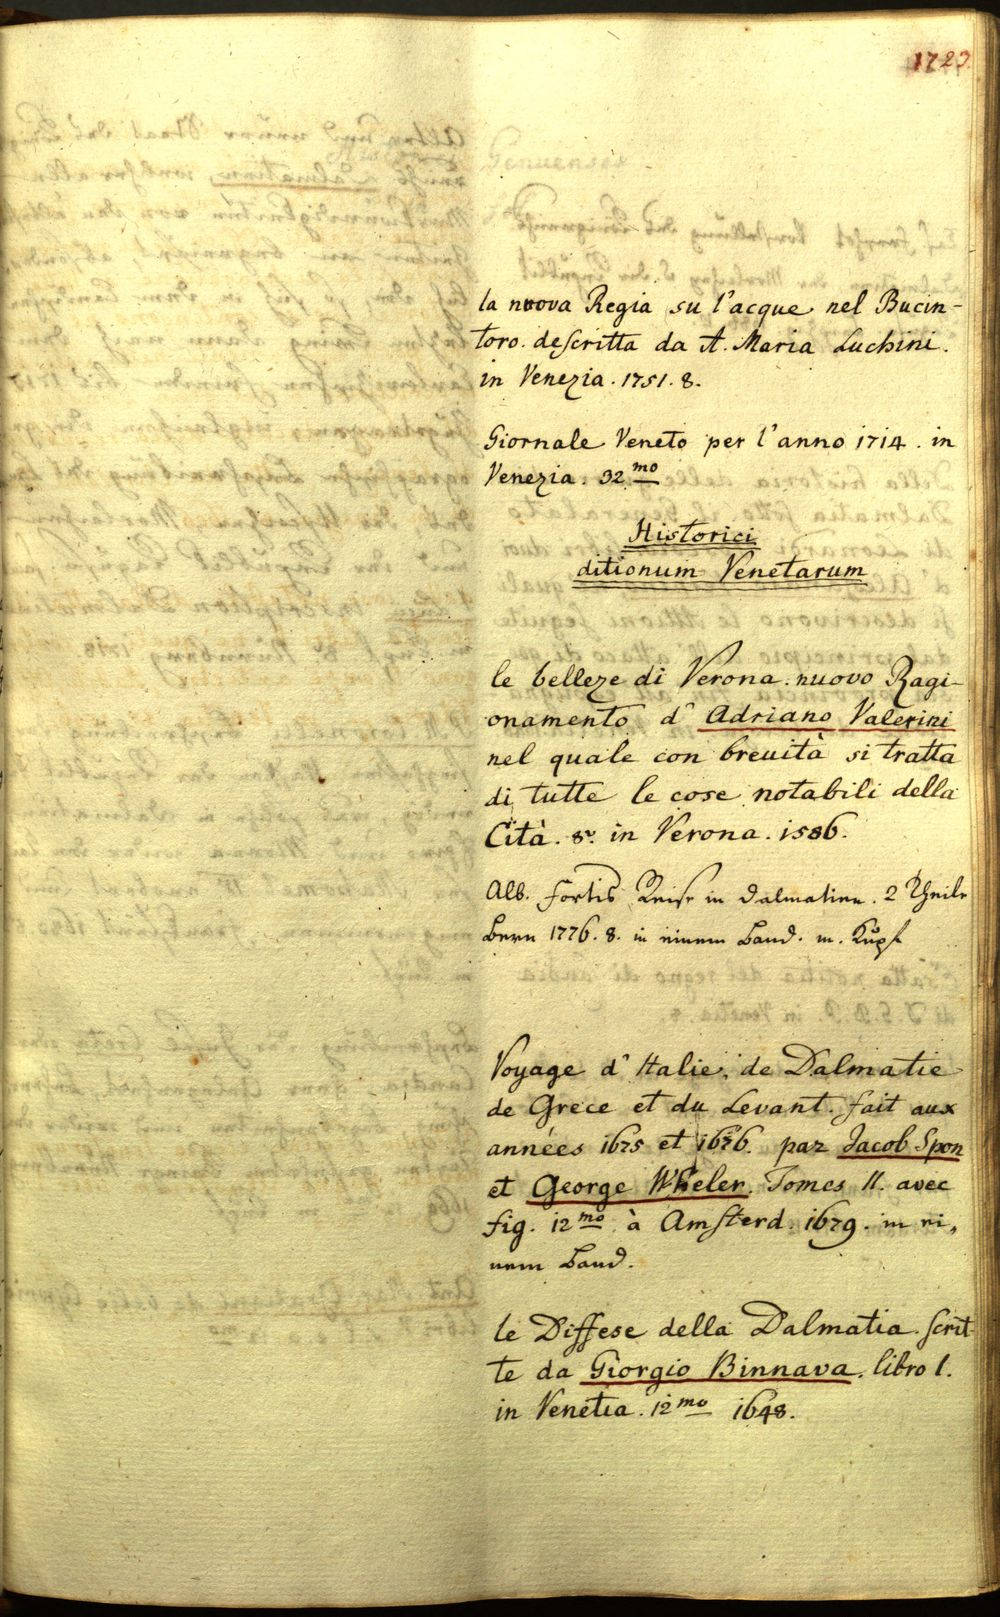 1723.
la nuova Regia su l'acque nel Bucin-
toro. descritta da A. Maria Luchini.
in Venezia. 1751. 8.
Giornale Veneto per l'anno 1714. in
Venezia. 32mo
Historici
ditionum Venetarum
le belleze di Verona. nuovo Ragi-
onamento d' Adriano Valerini
nel quale con breuità si tratta
di tutte le cose notabili della
Cità. 8r. in Verona. 1586.
Alb. Fortis Reise in Dalmatien. 2 Theile
Bern 1776. 8. in einem Band. m. Kupf
Voyage d' Italie, de Dalmatie
de Grece et du Levant. fait aux
années 1675 et 1676. par Jacob Spon
et George Wheler. Tomes II. avec
fig. 12mo à Amsterd. 1679. in ei-
nem Band.
le Diffese della Dalmatia. scrit-
te da Giorgio Binnava. libro I.
in Venetia. 12mo 1648.